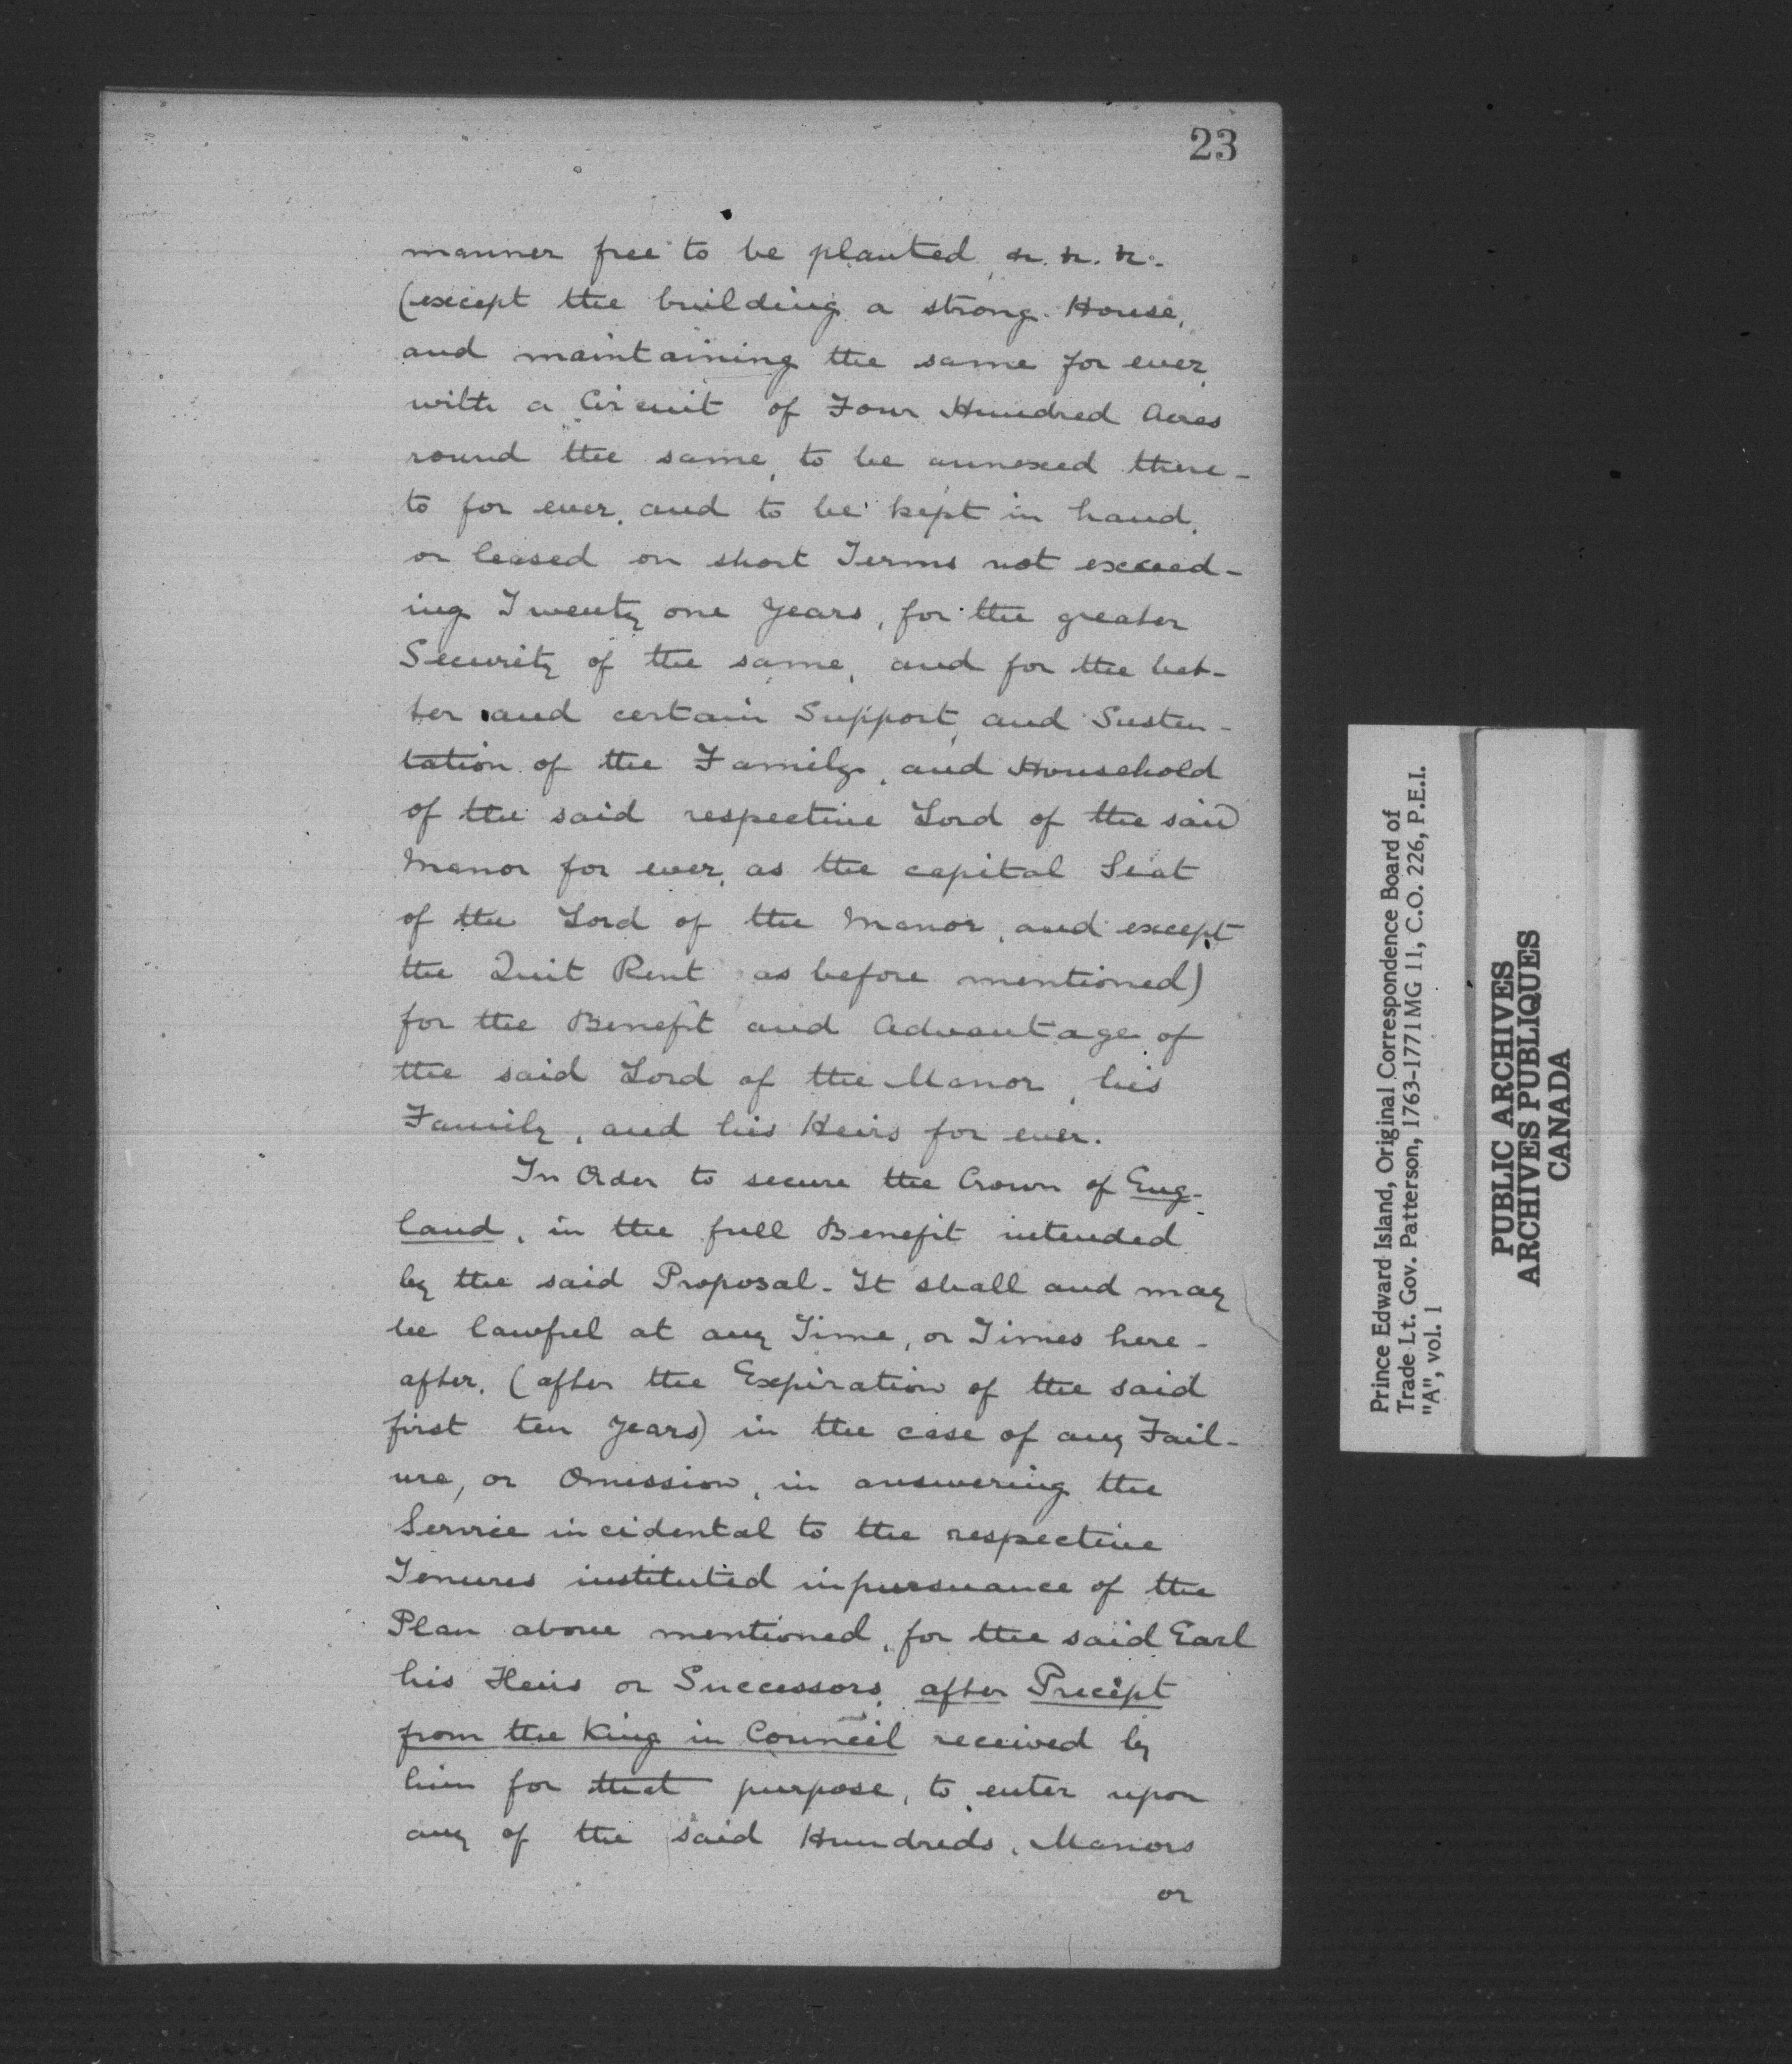 23
manner free to be planted, &. &. &.
(except the building a strong House,
and maintaining the same for ever,
with a Circuit of Four Hundred Acres
round the same, to be annexed there-
to for ever, and to be kept in hand,
or leased on short Terms not exceed-
ing Twenty one years, for the greater
Security of the same, and for the bet-
ter and certain Support, and Susten-
tation of the Family, and Household
of the said respective Lord of the said
Manor for ever, as the capital Seat
of the Lord of the Manor, and except
the Quit Rent as before mentioned)
for the Benefit and Advantage of
the said Lord of the Manor, his
Family, and his Heirs for ever.
In Order to secure the Crown of Eng-
land, in the full Benefit intended
by the said Proposal - It shall and may
be lawful at any Time, or Times here-
after, (after the Expiration of the said
first ten years) in the case of any Fail-
ure, or Omission, in answering the
Service incidental to the respective
Tenures instituted in pursuance of the
Plan above mentioned, for the said Earl
his Heirs or Successors, after Precept
from the King in Council received by
him for that purpose, to enter upon
any of the said Hundreds, Manors
or
Prince Edward Island, Original Correspondence Board of
Trade Lt. Gov. Patterson, 1763-1771 MG 11, C.O. 226, P.E.I.
"A", vol. 1
PUBLIC ARCHIVES
ARCHIVES PUBLIQUES
CANADA